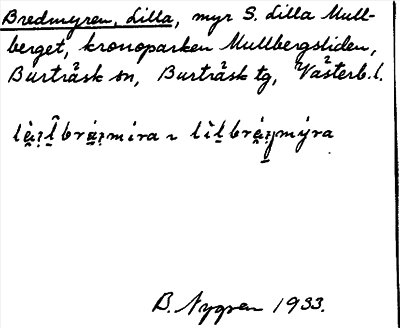 Bredmyren, Lilla, myr S. Lilla Mull-
berget, kronoparken Mullbergsliden,
Burträsk sn, Burträsk tg, Västerb. l.
B. Nygren 1933.